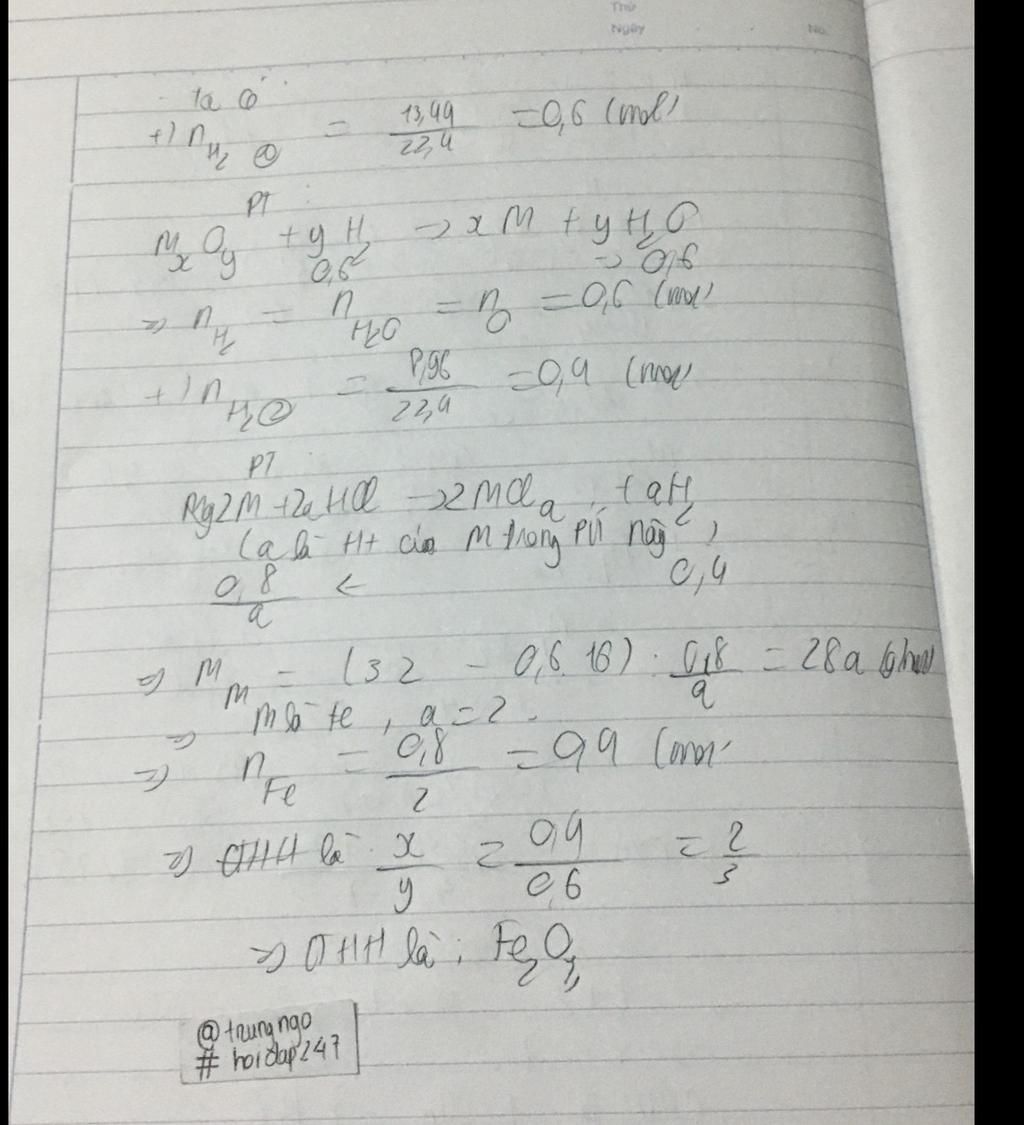 Thứ
Ngày No.
Ta có
+) n H₂ ① = 13,44/22,4 = 0,6 (mol)
PT
MₓOᵧ + yH₂ → xM + yH₂O
0,6 → 0,6
⇒ n H₂ = n H₂O = n O = 0,6 (mol)
+) n H₂② = 8,96/22,4 = 0,4 (mol)
PT
2M + 2aHCl → 2MClₐ + aH₂
(a là Ht của M trong pứ này)
0,8/a ← 0,4
⇒ M M = (32 - 0,6.16) . 0,8/a = 28a
⇒ M là Fe, a = 2.
⇒ n Fe = 0,8/2 = 0,4 (mol
⇒ CTHH là x/y = 0,4/0,6 = 2/3
⇒ CTHH là : Fe₂O₃
@trungngo
# hoidap247